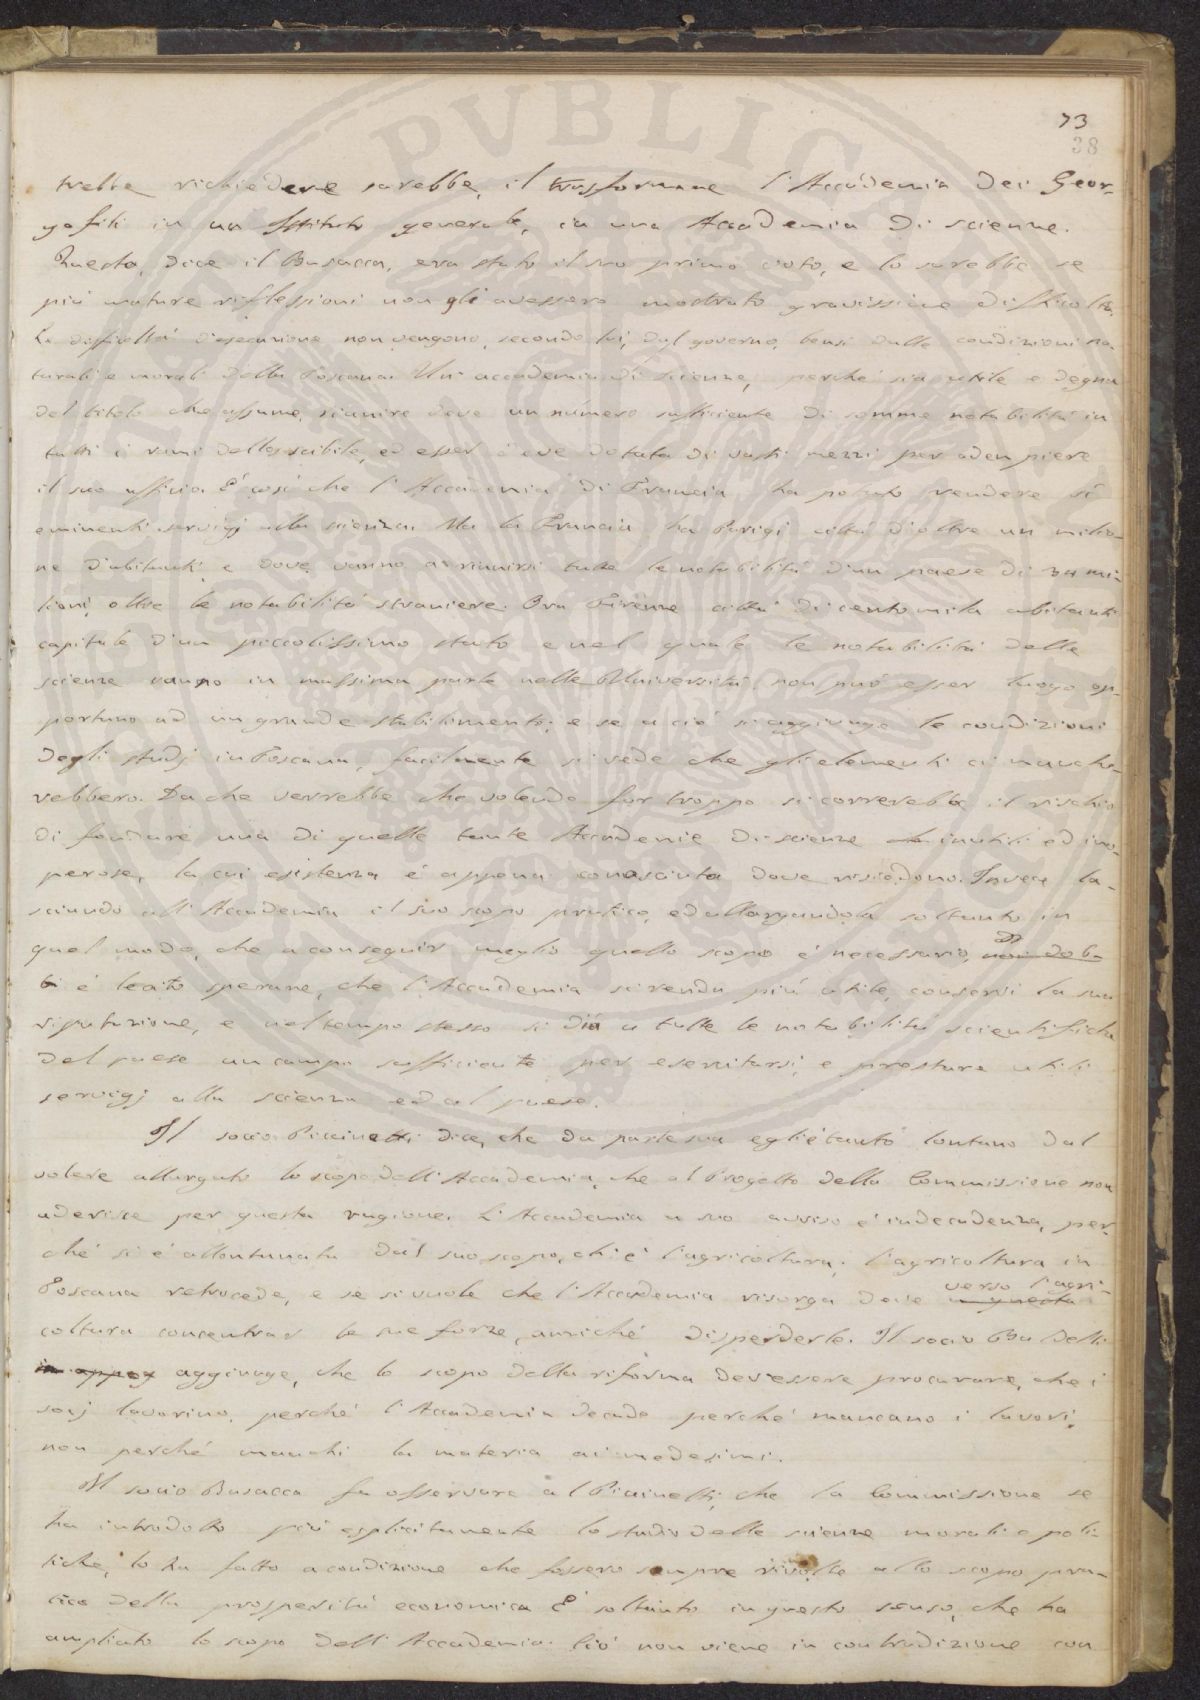 73
38
trebbe richiedere sarebbe, il trasformare l'Accademia dei Geor-
gofili in un Istituto generale, in una Accademia di scienze.
Questo, dice il Busacca, era stato il suo primo voto, e lo sarebbe se
più mature riflessioni non gli avessero mostrato gravissime difficoltà.
Le difficoltà d'esecuzione non vengono, secondo lui, dal governo, bensì dalle condizioni na-
turali e morali della Toscana. Un'accademia di scienze, perché sia utile e degna
del titolo che assume, riunire deve un número sufficiente di somme notabilità in
tutti i rami dello scibile, ed esser deve dotata di vasti mezzi per adempiere
il suo ufficio. È così che l'Accademia di Francia ha potuto rendere sì
eminenti servigj alla scienza. Ma la Francia ha Parigi città d'oltre un milio-
ne d'abitanti, e dove vanno a riunirsi tutte le notabilità d'un paese di 34 mi-
lioni, oltre le notabilità straniere. Ora Firenze città di centomila abitanti
capitale d'un piccolissimo stato e nel quale le notabilità delle
scienze vanno in massima parte nelle Università, non può esser luogo op-
portuno ad un grande stabilimento; e se a ciò si aggiunge le condizioni
degli studj in Toscana, facilmente si vede che gli elementi ci manche-
rebbero. Da che verrebbe che volendo far troppo si correrebbe il rischio
di fondare una di quelle tante Accademie di scienze inutili ed ino-
perose, la cui esistenza è appena conosciuta dove risiedono. Invece la-
sciando all'Accademia il suo scopo pratico, ed allargandola soltanto in
quel modo, che a conseguir meglio quello scopo è necessario, non dob-
bi è lecito sperare, che l'Accademia si renda più utile, conservi la sua
riputazione, e nel tempo stesso si dia a tutte le notabilità scientifiche
del paese un campo sufficiente per esercitarsi, e prestare utili
servigj alla scienza ed al paese.
Il socio Piccinetti dice, che da parte sua egli è tanto lontano dal
volere allargato lo scopo dell'Accademia, che al Progetto della Commissione non
aderisce per questa ragione. L'Accademia a suo avviso è in decadenza, per-
ché si è allontanata dal suo scopo, ch'è l'agricoltura; l'agricoltura in
Toscana retrocede, e se si vuole che l'Accademia risorga deve in questa verso l'agri-
coltura concentrar le sue forze, anziché disperderle. Il socio Baldelli
in appog aggiunge, che lo scopo della riforma dev'essere procurare, che i
socj lavorino, perché l'Accademia decade perché mancano i lavori,
non perché manchi la materia ai medesimi.
Il socio Busacca fa osservare al Piccinetti, che la Commissione se
ha introdotto più esplicitamente lo studio delle scienze morali e poli-
tiche, lo ha fatto a condizione che fossero sempre rivolte allo scopo pra-
tico della prosperità economica. È soltanto in questo senso, che ha
ampliato lo scopo dell'Accademia. Ciò non viene in contradizione con